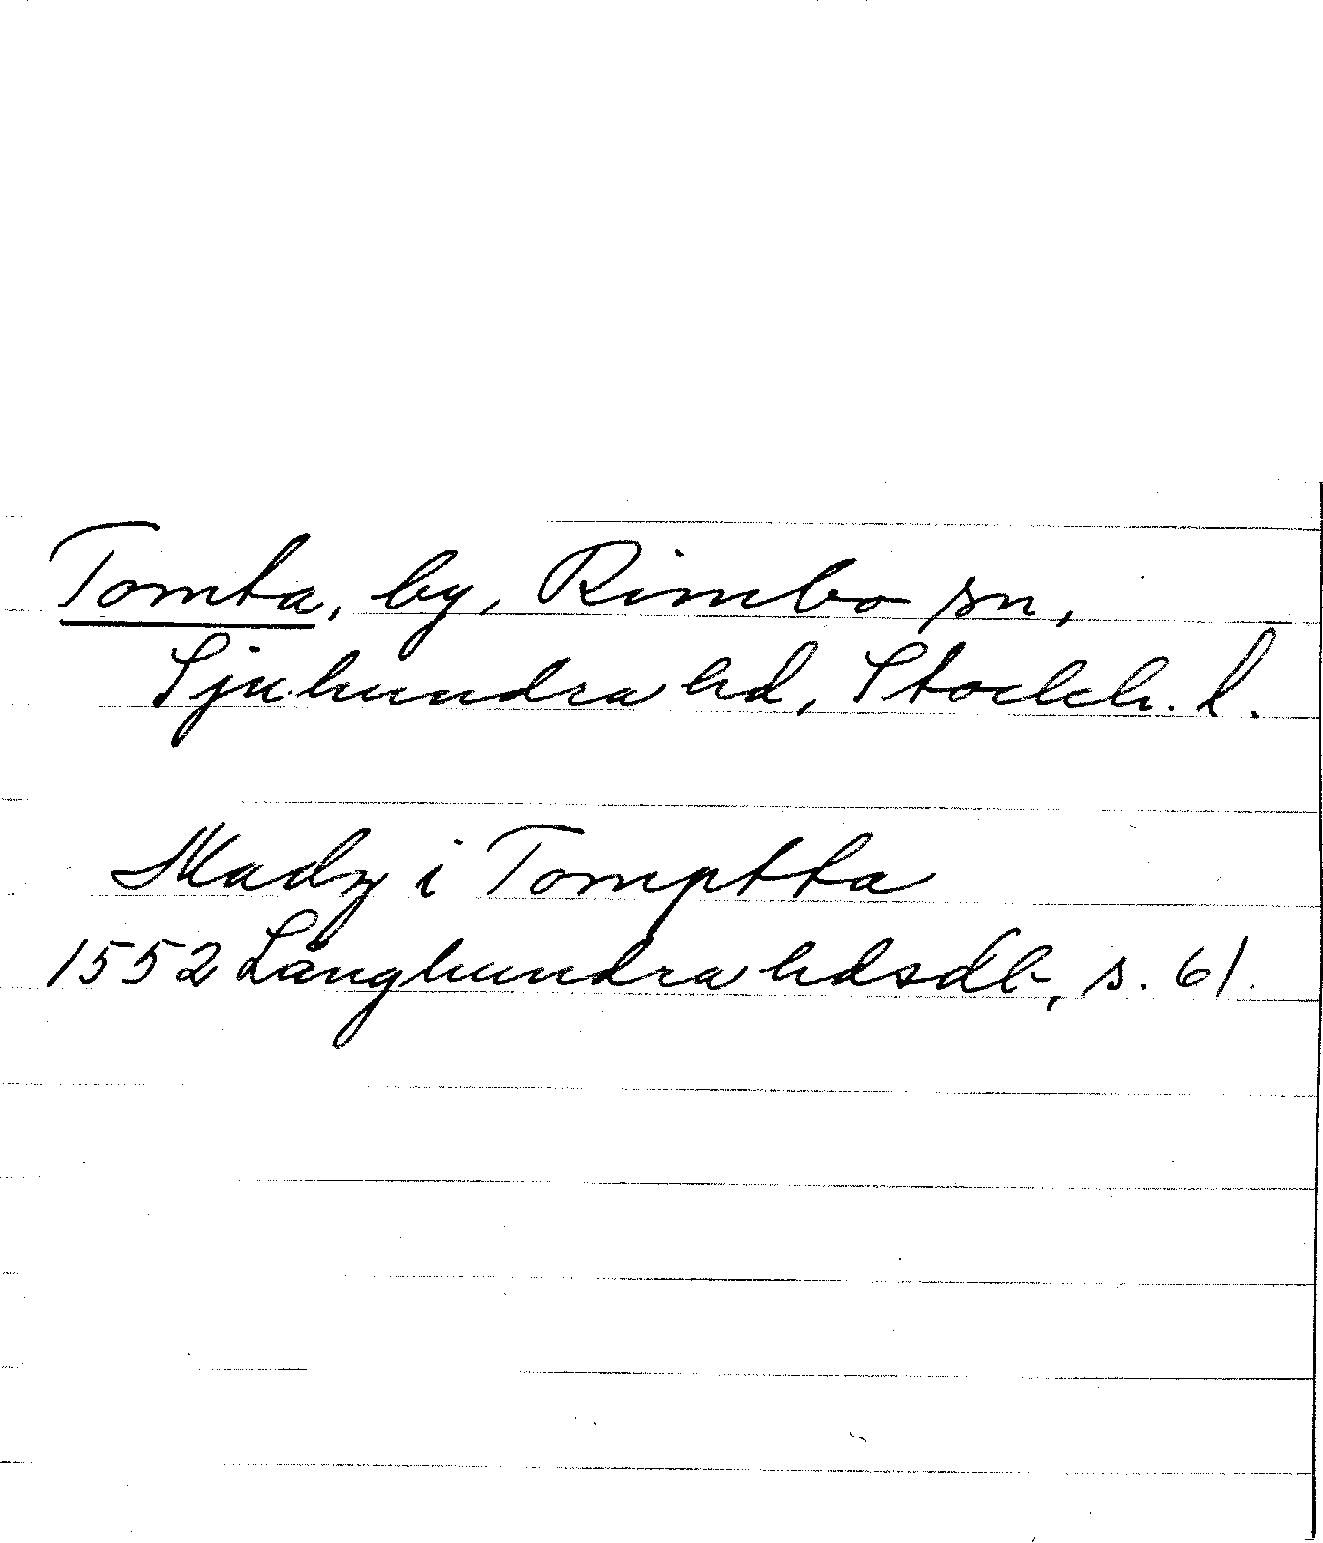 Tomta, by, Rimbo sn,
Sjuhundra hd, Stockh. l.
Madz i Tomptta
1552 Långhundra hdsdb, s. 61.